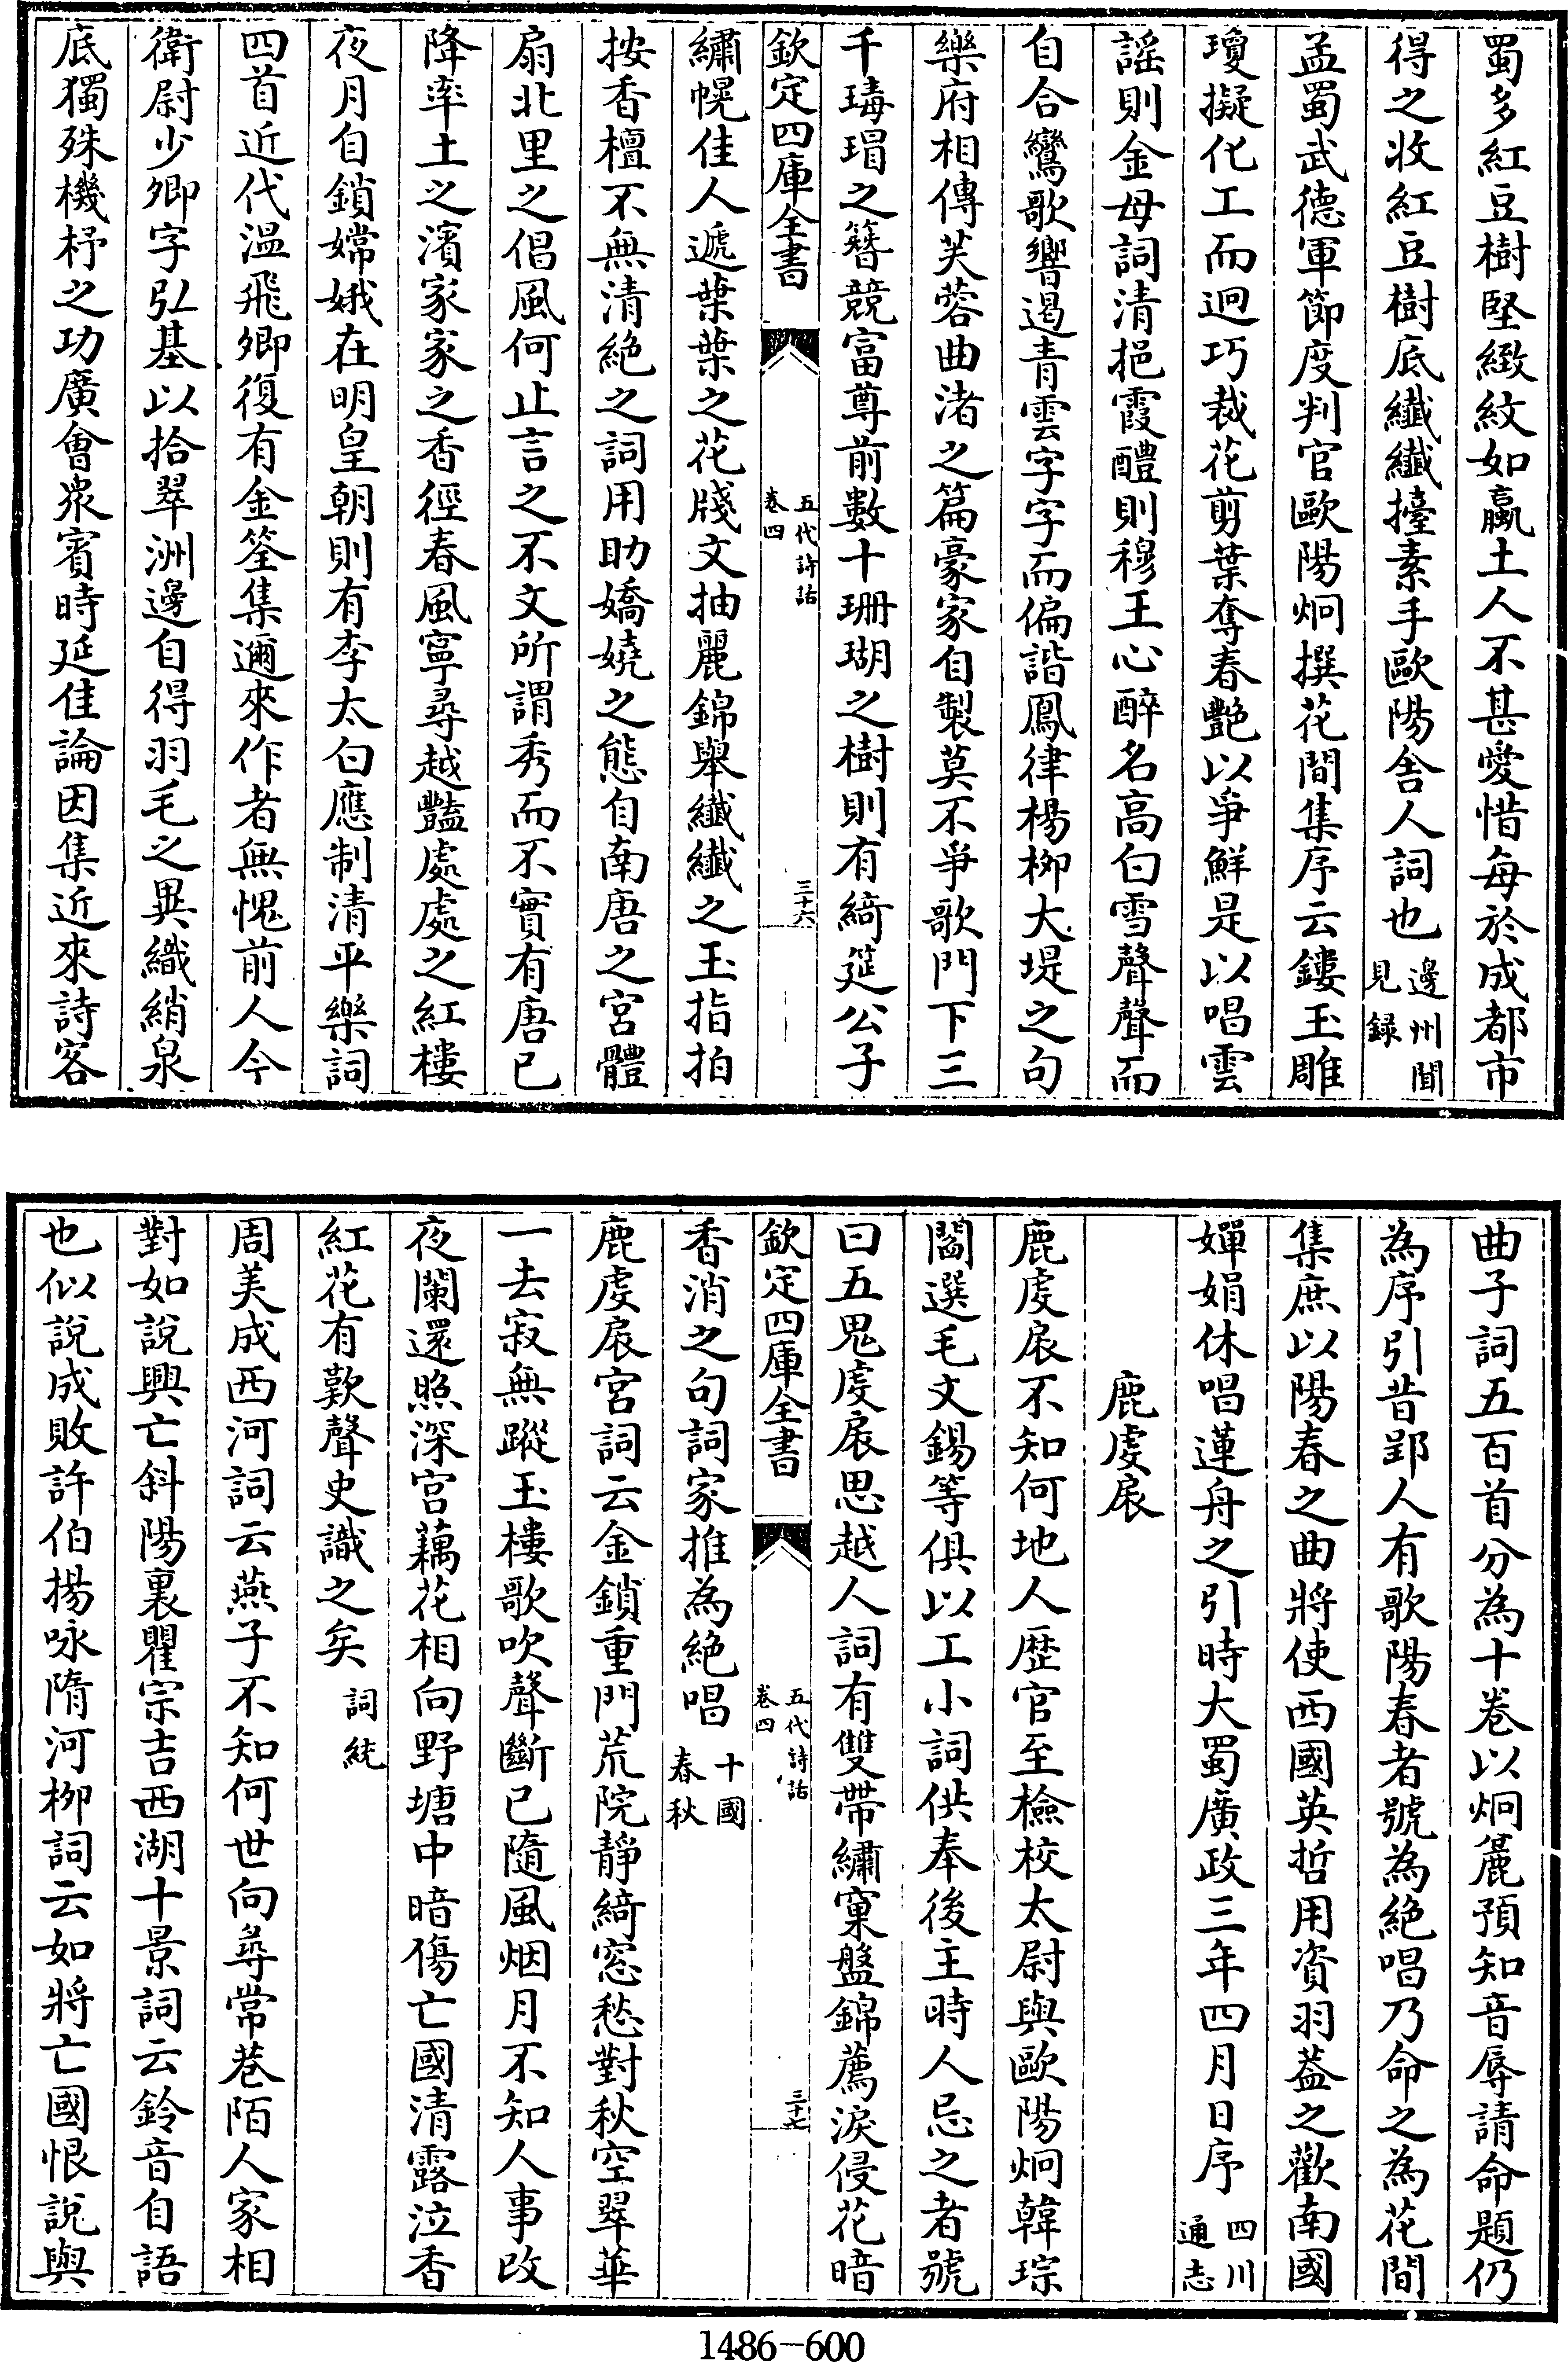 蜀多紅豆樹堅緻紋如羸土人不甚愛惜每於成都市
得之收紅豆樹底纎纎擡素手歐陽舍人詞也邊州聞見録
孟蜀武德軍節度判官歐陽炯撰花間集序云鏤玉雕
瓊擬化工而迥巧裁花剪葉奪春艶以爭鮮是以唱雲
謡則金母詞清挹霞醴則穆王心醉名高白雪聲聲而
自合鸞歌響遏青雲字字而偏諧鳳律楊柳大堤之句
樂府相傳芙蓉曲渚之篇豪家自製莫不爭歌門下三
千瑇瑁之簪競富尊前數十珊瑚之樹則有綺筵公子
欽定四庫全書
五代詩話
卷四
三十六
繡幌佳人遞葉葉之花牋文抽麗錦舉纎纎之玉指拍
按香檀不無清絶之詞用助嬌嬈之態自南唐之宮體
扇北里之倡風何止言之不文所謂秀而不實有唐已
降率土之濱家家之香徑春風寜尋越豔處處之紅樓
夜月自鎖嫦娥在明皇朝則有李太白應制清平樂詞
四首近代溫飛卿復有金筌集邇來作者無愧前人今
衛尉少卿字弘基以拾翠洲邊自得羽毛之異織綃泉
底獨殊機杼之功廣會衆賓時延佳論因集近來詩客
曲子詞五百首分為十卷以炯麄預知音辱請命題仍
為序引昔郢人有歌陽春者號為絶唱乃命之為花間
集庶以陽春之曲將使西國英哲用資羽葢之歡南國
嬋娟休唱蓮舟之引時大蜀廣政三年四月日序四川通志
鹿虔扆
鹿虔扆不知何地人歴官至檢校太尉與歐陽炯韓琮
閻選毛文錫等俱以工小詞供奉後主時人忌之者號
曰五鬼虔扆思越人詞有雙帶繡窠盤錦薦淚侵花暗
欽定四庫全書
五代詩話
卷四
三十七
香消之句詞家推為絶唱十國春秋
鹿虔扆宮詞云金鎖重門荒院靜綺窓愁對秋空翠華
一去寂無蹤玉樓歌吹聲斷已隨風烟月不知人事改
夜闌還照深宮藕花相向野塘中暗傷亡國清露泣香
紅花有歎聲史識之矣詞統
周美成西河詞云燕子不知何世向尋常巷陌人家相
對如說興亡斜陽裏瞿宗吉西湖十景詞云鈴音自語
也似說成敗許伯揚咏隋河柳詞云如將亡國恨說與
1486-600